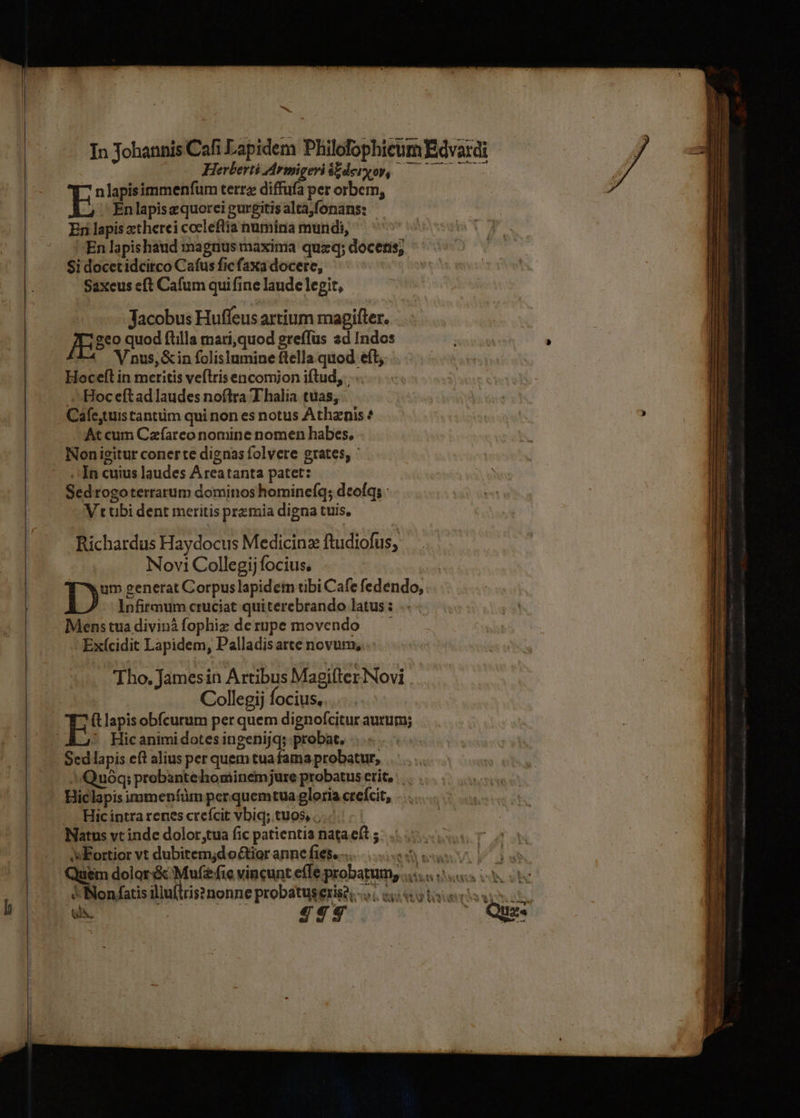 In Johannis Casi Lapidem Philosophicum Edvardi
Herberti Armigeri ἑξάστιχον,
En lapis immensum terræ diffusa per orbem,
En lapis æquorei gurgitis alta, sonans:
En lapis ætherei cœlestia numina mundi,
En lapis haud magnus maxima quæq; docens;
Si docet idcirco Casus sic saxa docere,
Saxeus est Casum qui sine laude legit,
Jacobus Husseus artium magister.
Ægeo quod stilla mari, quod gressus ad Indos
Vnus, & in solis lumine stella quod est,
Hoc est in meritis vestris encomion istud,
Hoc est ad laudes nostra Thalia tuas,
Case, tuis tantùm qui non es notus Athænis?
At cum Cæsareo nomine nomen habes.
Non igitur coner te dignas solvere grates,
In cuius laudes Area tanta patet:
Sed rogo terrarum dominos hominesq; deosq;
Vt tibi dent meritis præmia digna tuis.
Richardus Haydocus Medicinæ studiosus,
Novi Collegij socius.
Dum generat Corpus lapidem tibi Case sedendo,
Infirmum cruciat qui terebrando latus:
Mens tua divinâ sophiæ de rupe movendo
Exscidit Lapidem, Palladis arte novum,
Tho. James in Artibus Magister Novi
Collegij socius,
Est lapis obscurum per quem dignoscitur aurum;
Hic animi dotes ingenijq; probat.
Sed lapis est alius per quem tua fama probatur,
Quôq; probante hominem jure probatus erit.
Hic lapis immensùm per quem tua gloria crescit,
Hic intra renes crescit vbiq; tuos,
Natus vt inde dolor, tua sic patientia nata est;
Fortior vt dubitem, doctior anne sies.
Quem dolor & Musæ sic vincunt esse probatum,
Non satis illustris? nonne probatus eris?
¶¶¶ Quæ-